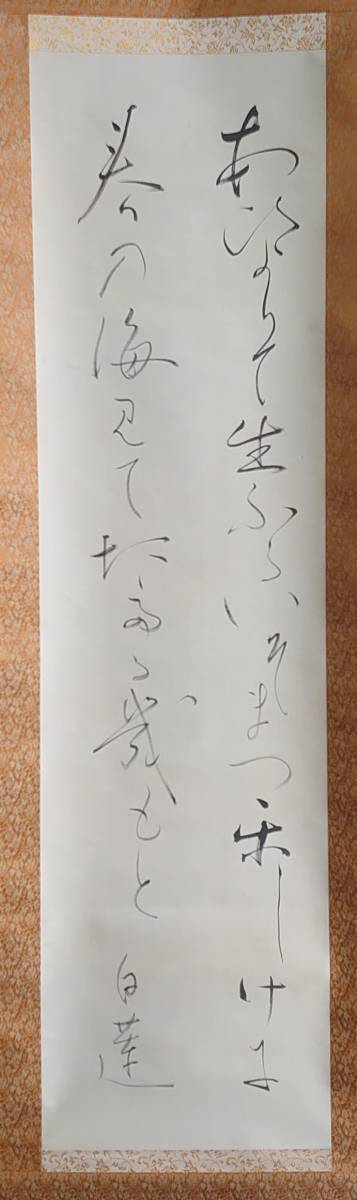 あひよりて生ふるいそまつ楽しけに
春の海見てたてる幾もと 白蓮